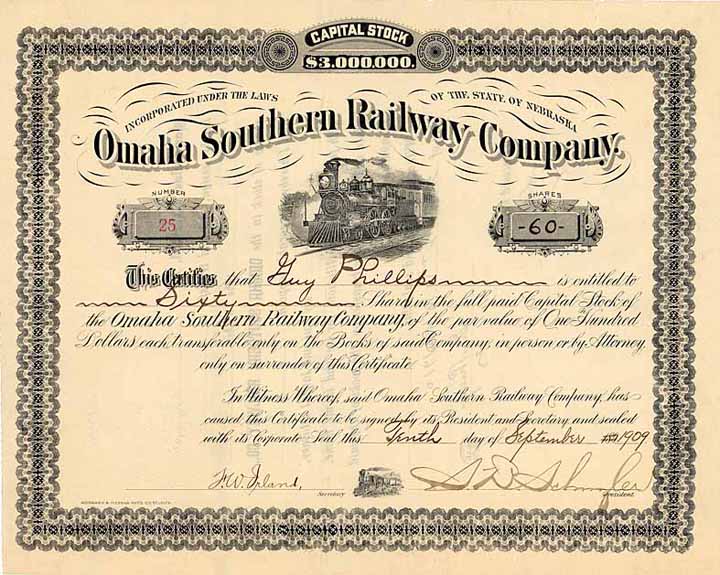 CAPITAL STOCK
$3,000,000.
INCORPORATED UNDER THE LAWS OF THE STATE OF NEBRASKA
Omaha Southern Railway Company.
NUMBER
25
SHARES
-60-
This Certifies that Guy Phillips is entitled to
Sixty Shares in the full paid Capital Stock of
the Omaha Southern Railway Company, of the par value of One Hundred
Dollars each, transferable only on the Books of said Company, in person or by Attorney,
only on surrender of this Certificate.
In Witness Whereof, said Omaha Southern Railway Company, has
caused this Certificate to be signed by its President and Secretary and sealed
with its Corporate Seal this Tenth day of September 1909
F.W. Ireland,
Secretary
President.